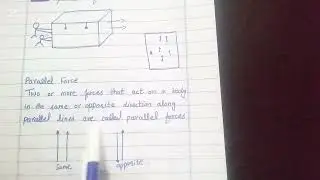 Parallel Force
Two or more forces that act on a body
in the same or opposite direction along
parallel lines are called parallel forces
same opposite